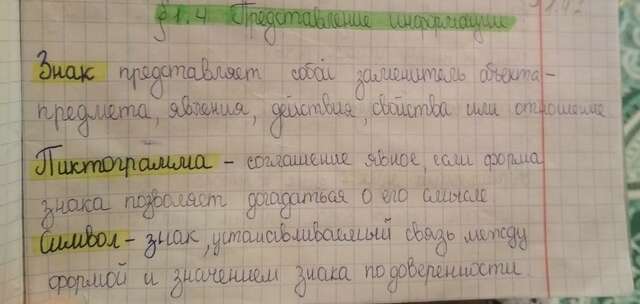 §1.4 Представление информации
Знак представляет собой заменитель объекта-
предмета, явления, действия, свойства или отношение
Пиктограмма - соглашение явное, если форма
знака позволяет догадаться о его смысле
Символ - знак, устанавливаемый связь между
формой и значением знака по доверенности.